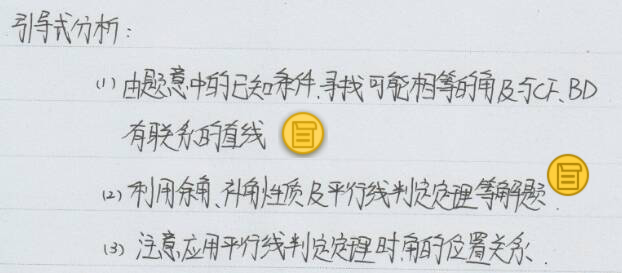 引导式分析:
(1) 由题意中的已知条件,寻找可能相等的角及与CF、BD
有联系的直线
(2) 利用余角、补角性质及平行线判定定理等解题.
(3) 注意应用平行线判定定理时角的位置关系.